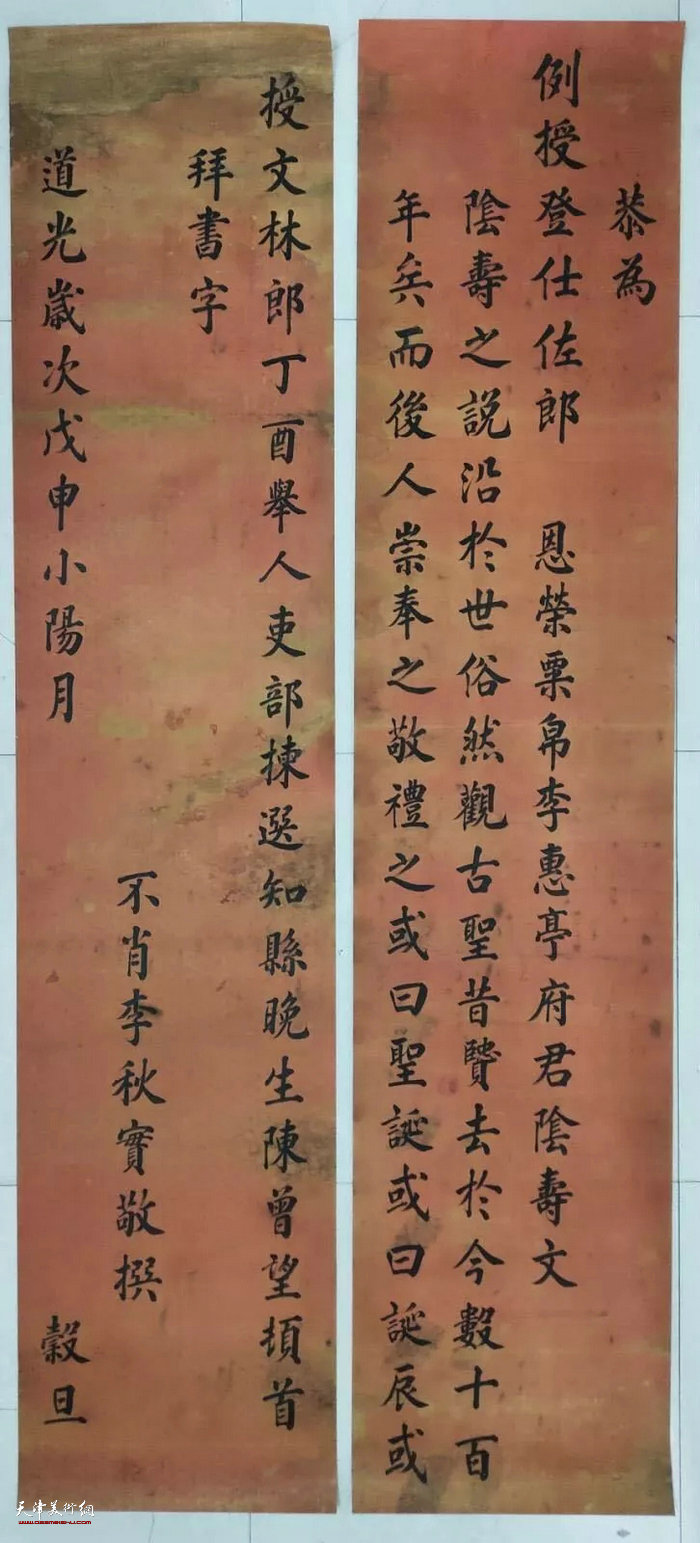 恭為
例授登仕佐郎　恩榮粟帛李惠亭府君陰壽文
陰壽之説沿於世俗然觀古聖昔賢去於今數十百
年矣而後人崇奉之敬禮之或曰聖誕或曰誕辰或
授文林郎丁酉舉人吏部揀選知縣晚生陳曾望頓首
拜書字
不肖李秋實敬撰
道光歲次戊申小陽月　穀旦
天津美術網